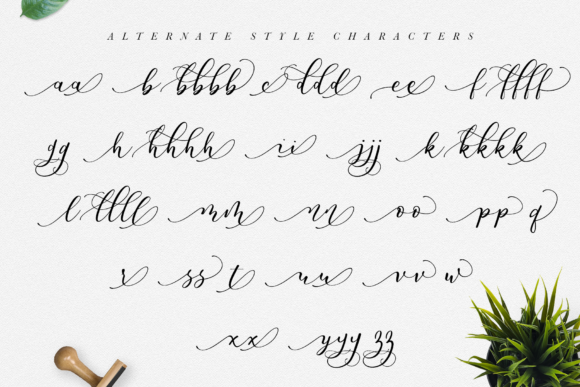 ALTERNATE STYLE CHARACTERS
aa b bbbb c ddd ee f ffff
gg h hhhh ii jjj k kkkk
l llll mm nn oo pp q
r ss t uu vv w
xx yyy zz